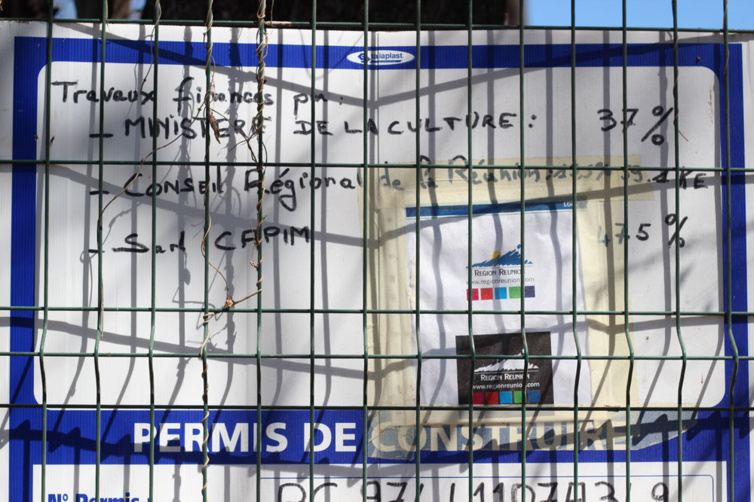 Travaux financés par:
- MINISTERE DE LA CULTURE: 37 %
- CONSEIL Régional de la Réunion
- Sarl CAPIM 47.5 %
REGION REUNION
www.regionreunion.com
REGION REUNION
www.regionreunion.com
PERMIS DE CONSTRUIRE
N° Permis: